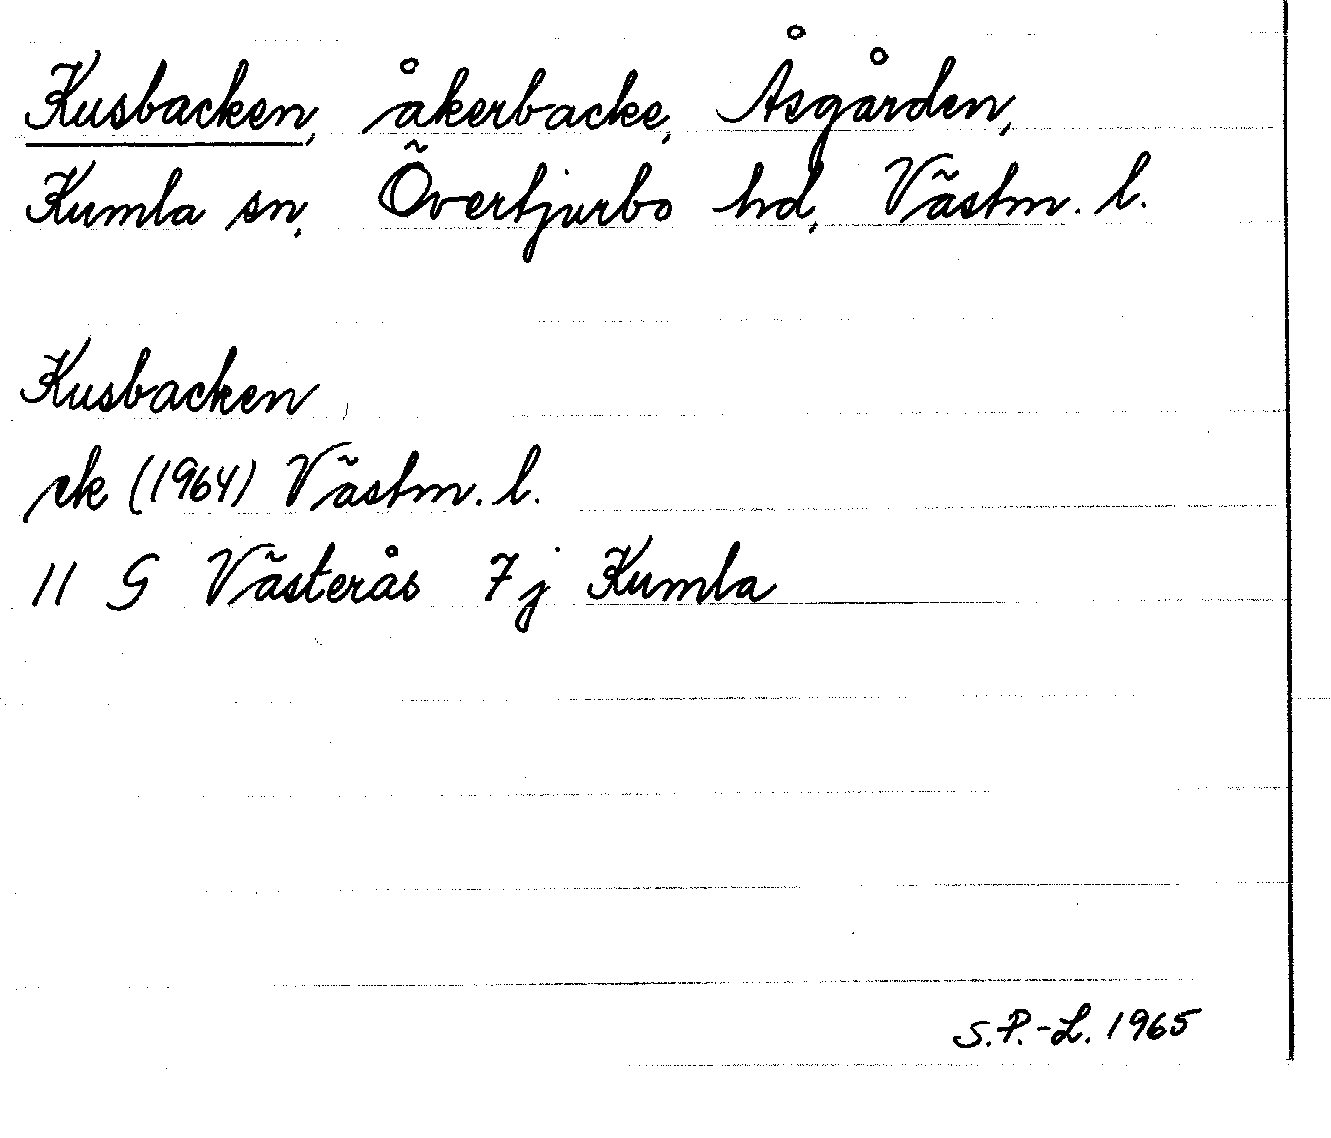 Kusbacken, åkerbacke, Åsgården,
Kumla sn, Övertjurbo hd, Västm. l.
Kusbacken
ek (1964) Västm. l.
11 G Västerås 7j Kumla
S.P.-L. 1965